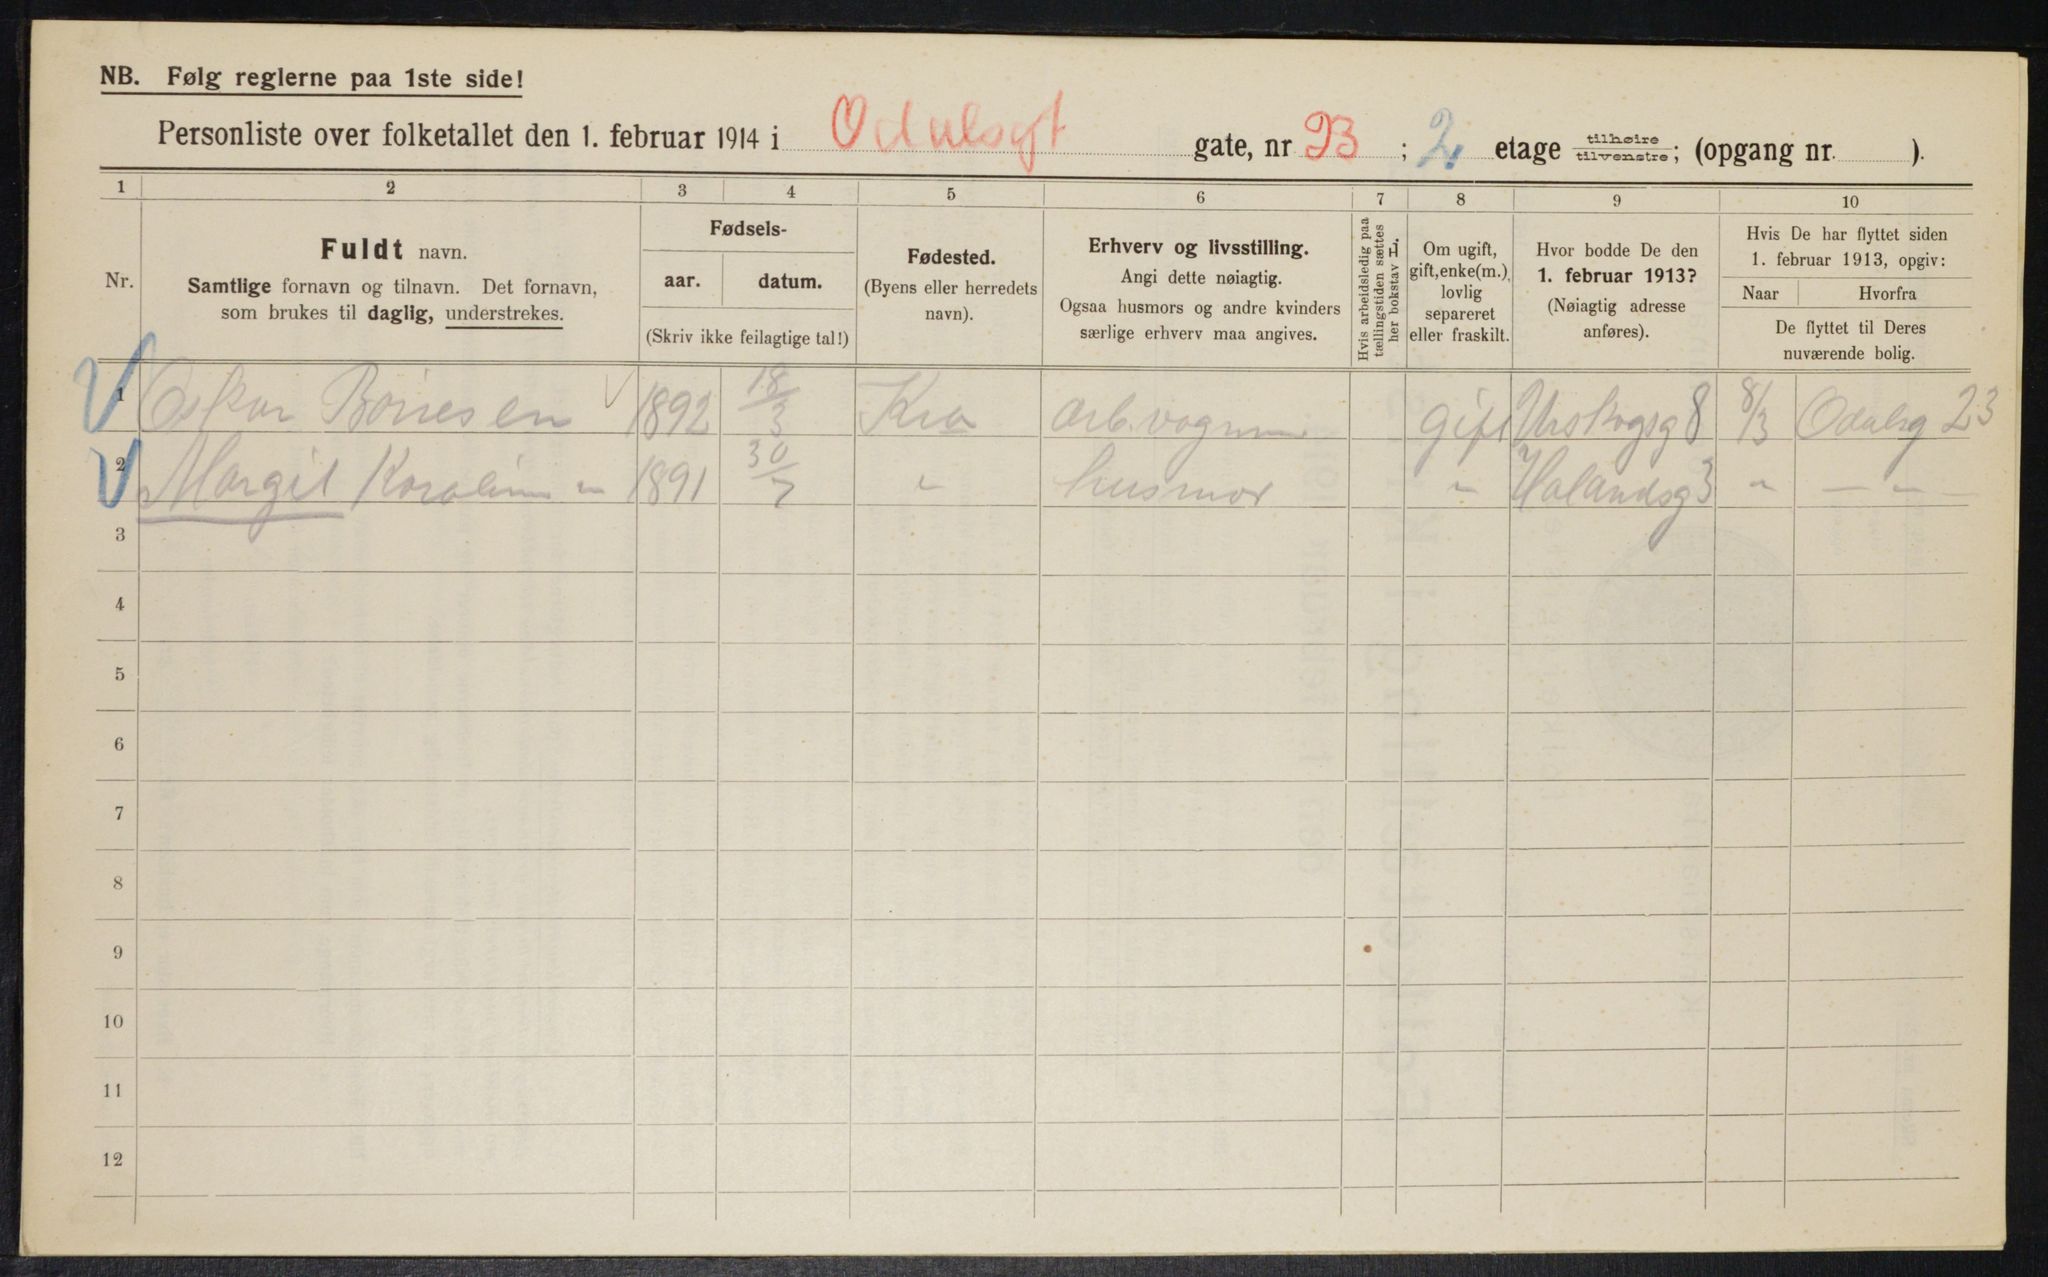 NB. Følg reglerne paa 1ste side!
Personliste over folketallet den 1. februar 1914 i Odalsgt gate, nr 23 ; 2. etage tilhøire tilvenstre; (opgang nr. ).
1 2 3 4 5 6 7 8 9 10
Nr.
Fuldt navn.
Samtlige fornavn og tilnavn. Det fornavn,
som brukes til daglig, understrekes.
Fødsels-
aar. datum.
(Skriv ikke feilagtige tal!)
Fødested.
(Byens eller herredets
navn).
Erhverv og livsstilling.
Angi dette nøiagtig.
Ogsaa husmors og andre kvinders
særlige erhverv maa angives.
Hvis arbeidsledig paa
tællingstiden sættes
her bokstav L.
Om ugift,
gift, enke(m.),
lovlig
separeret
eller fraskilt.
Hvor bodde De den
1. februar 1913?
(Nøiagtig adresse
anføres).
Hvis De har flyttet siden
1. februar 1913, opgiv:
Naar Hvorfra
De flyttet til Deres
nuværende bolig.
1 Oskar Borresen 1892 18/3 Kra arb. Gift Urskogsg 8 8/3 Odalsg 23
2 Margit Karoline " 1891 30/7 " husmor " Holandsg 3 " — " —
3
4
5
6
7
8
9
10
11
12